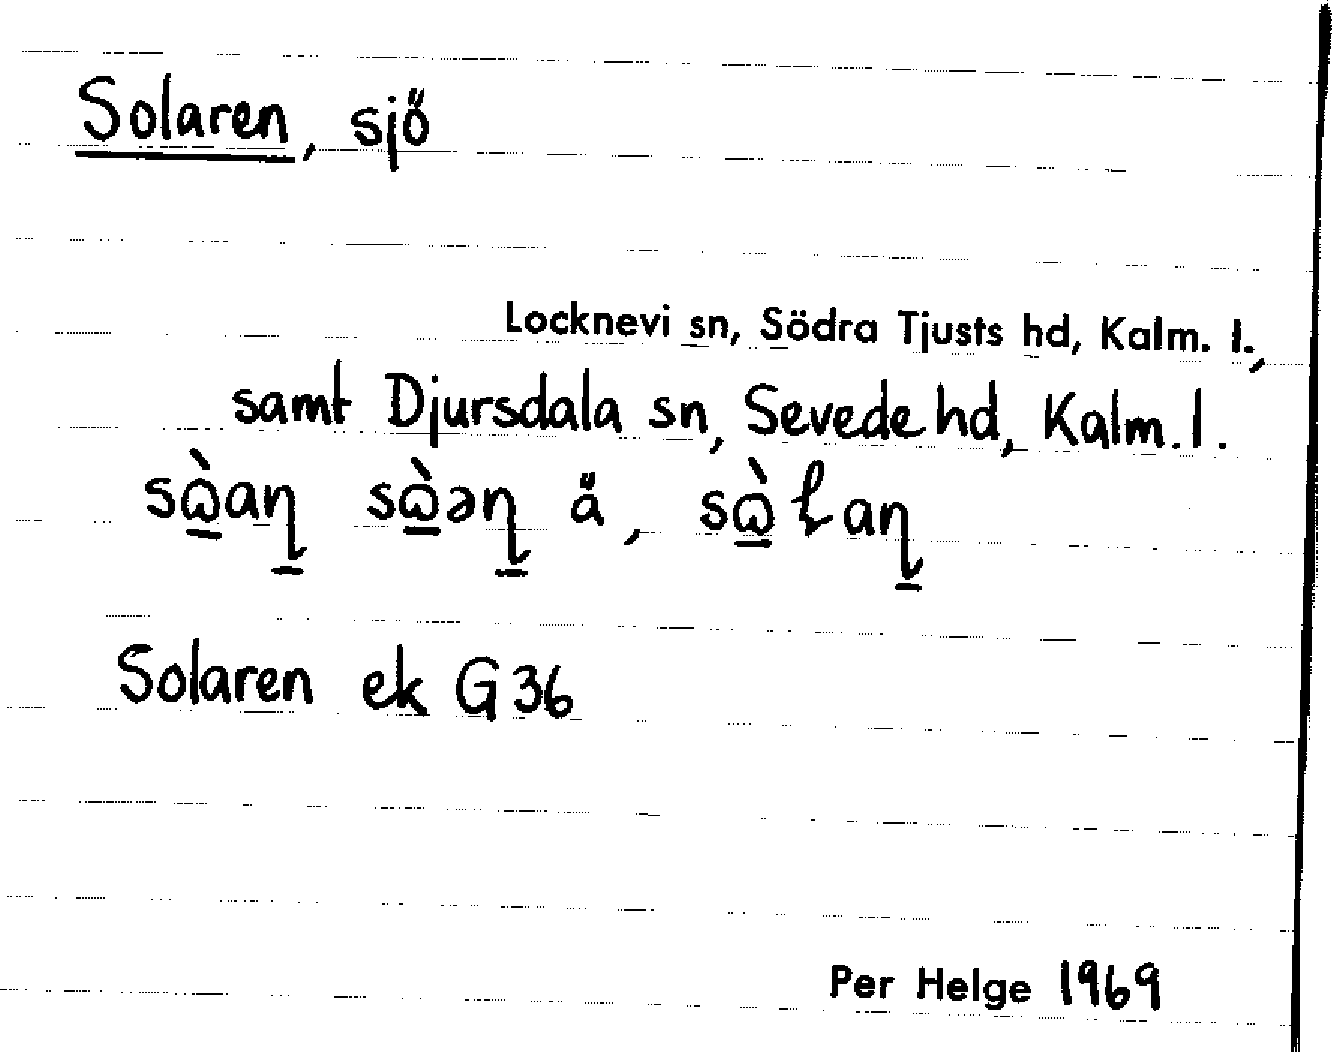 Solaren, sjö
Locknevi sn, Södra Tjusts hd, Kalm. l.,
samt Djursdala sn, Sevede hd, Kalm. l.
sɷ̠̀aɳ̠ sɷ̠̀əɳ̠ å, sɷ̠̀ɫaɳ̠
Solaren ek G 36
Per Helge 1969